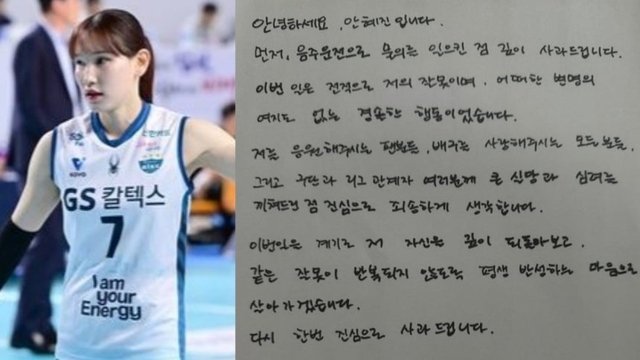 KOVO
GS 칼텍스
7
I am
your
Energy
안녕하세요, 안혜진입니다.
먼저, 음주운전으로 물의를 일으킨 점 깊이 사과드립니다.
이번 일은 전적으로 저의 잘못이며, 어떠한 변명의
여지도 없는 경솔한 행동이었습니다.
저를 응원해주시는 팬분들, 배구를 사랑해주시는 모든 분들,
그리고 구단과 리그 관계자 여러분께 큰 실망과 심려를
끼쳐드린 점 진심으로 죄송하게 생각합니다.
이번일을 계기로 저 자신을 깊이 되돌아보고,
같은 잘못이 반복되지 않도록 평생 반성하는 마음으로
살아가겠습니다.
다시 한번 진심으로 사과드립니다.